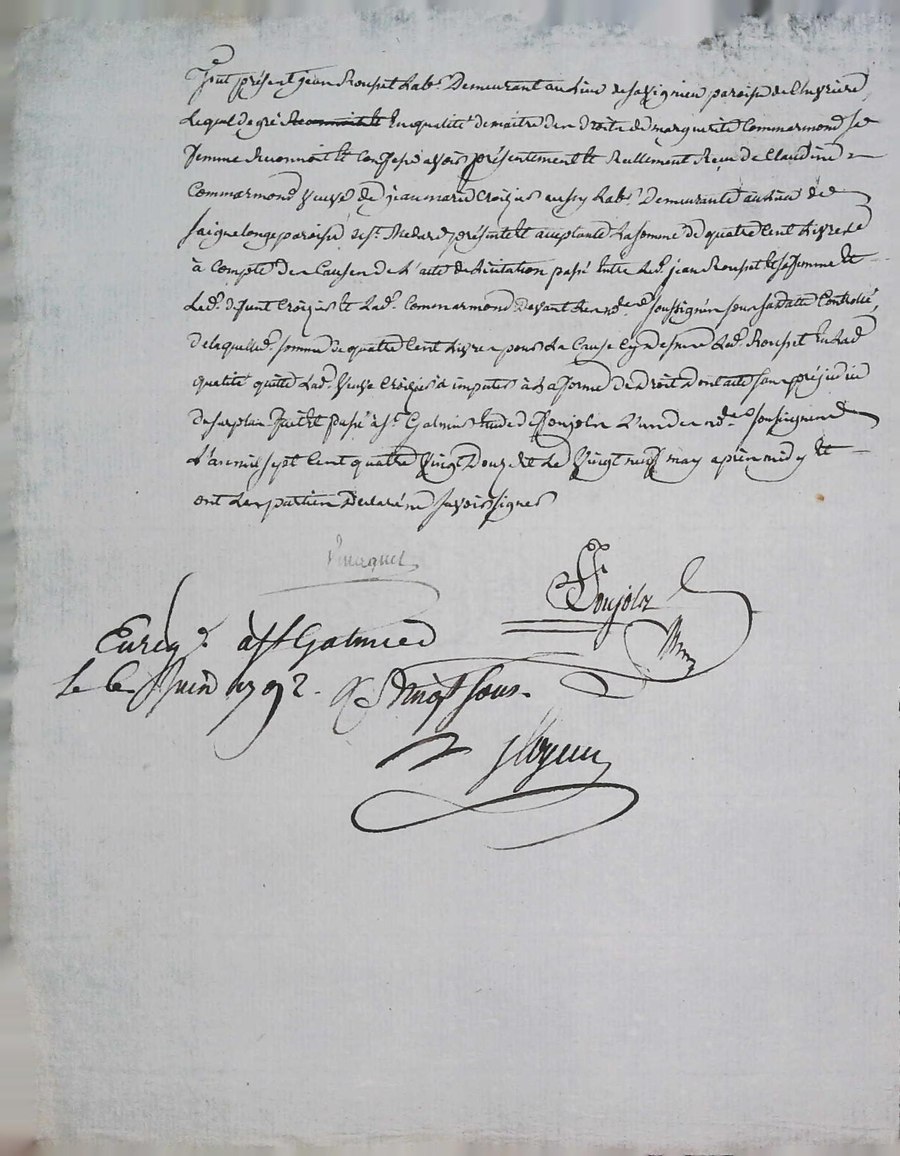 fut présent jean Rousset Lab.r Demeurant au Lieu de savignieu paroisse de Chevriere,
Lequel de gré Reconnoit et En qualité de maitre des droits de marguerite Commarmond sa
femme Reconnoit et Confesse avoir présentement et Reellement Reçu de Claudine
Commarmond veuve de jean marie Croizier aussy Lab.r Demeurante au Lieu de
saignelonge paroisse de St. Medard présente et acceptante La somme de quatre Cent Livres Et
à Compte des Causes de L'acte de Licitation passé Entre Led. jean Rousset et sa femme Et
Led. defunt Croizier Et Lad. Commarmond Devant Les nd.res soussignés sous sa date Controllé,
de laquelle d. somme de quatre Cent Livres pour La Cause Cy dessus Led. Rousset En Lad.
qualité quitte Lad. veuve Croizier à imputer à La forme de droit dont acte sans préjudice
de surplus fait Et passé à St. Galmier Etude Ponjols L'un des nd.res soussignés
L'an mil sept Cent quatre vingt Douze Et Le vingt neuf may après midy Et
ont Les parties Déclaré ne savoir signer
Ponjols
Enreg.é à St Galmier
le 6 Juin 1792. R vingt sous.